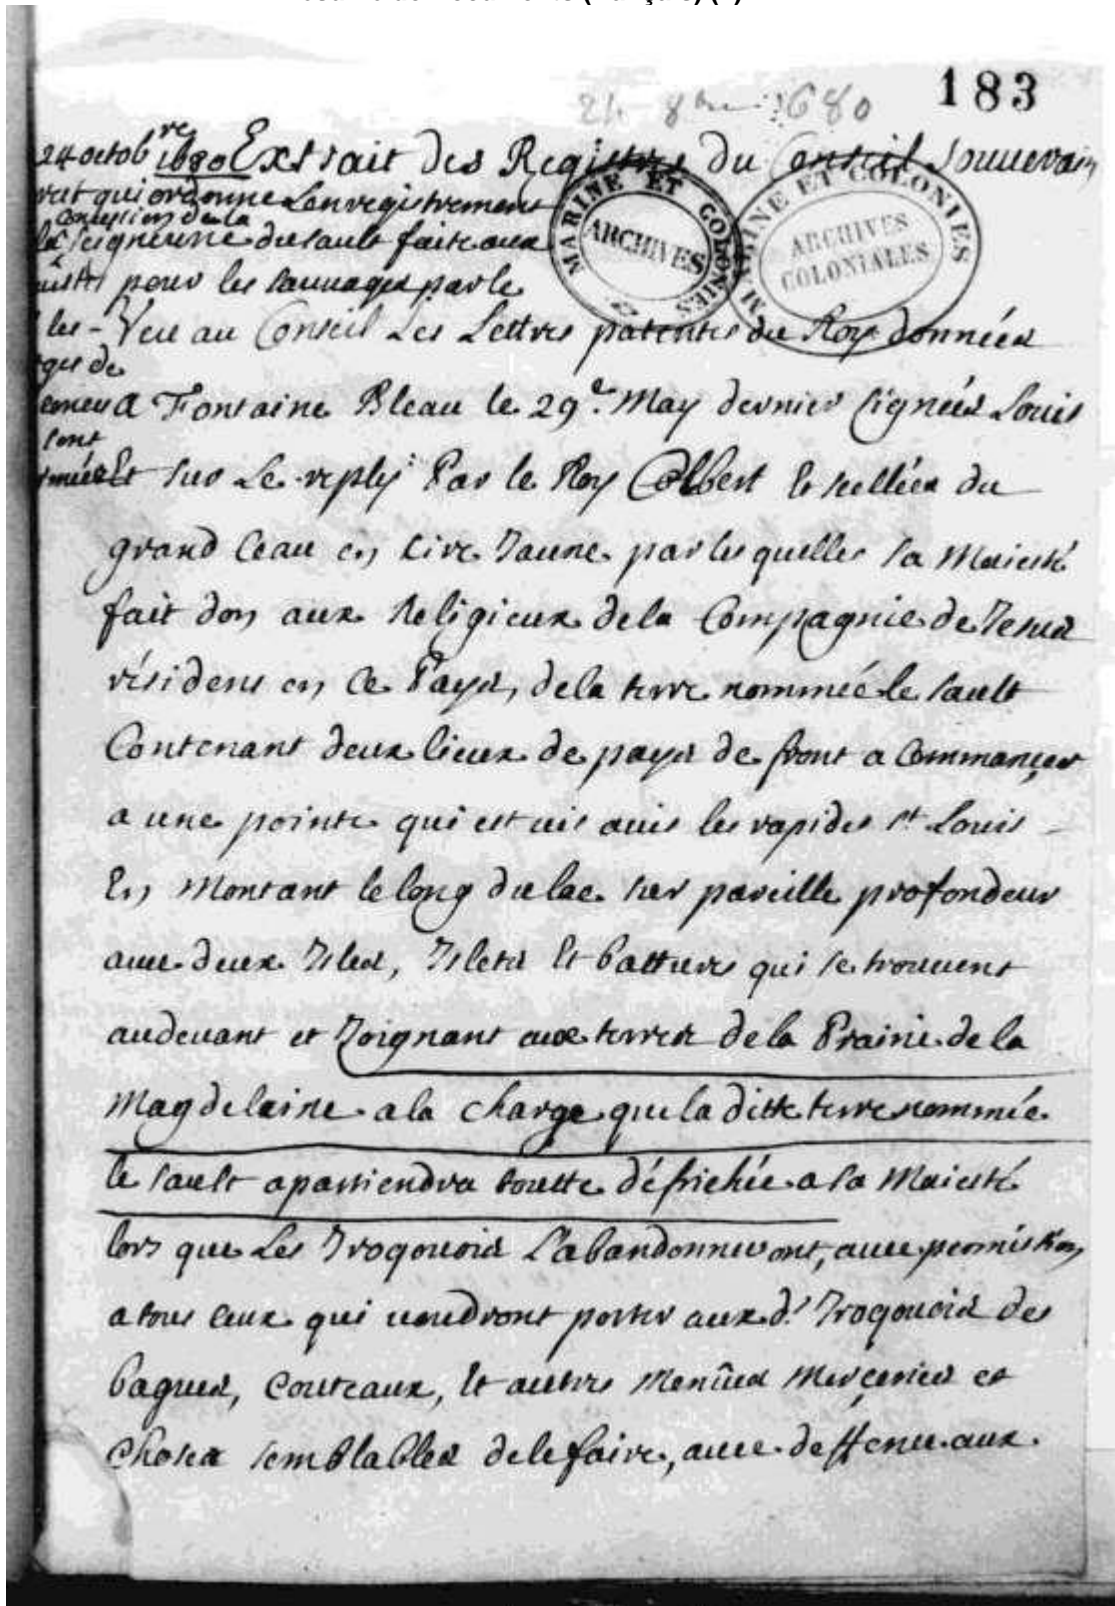 183
24 8bre 1680
24 octobre 1680 Extrait des Registres du Conseil Souuerain
qui ordonne Lenregistrement
Concession de la
Seigneurie du sault faite aux
pour les sauuages par le
les - Veu au Conseil Les Lettres patentes du Roy données
de
a Fontaine Bleau le 29e. May dernier signées Louis
sont
Et sur Le reply Par le Roy Colbert Et scellées du
grand Ceau en Cire Jaune par lesquelles sa Maiesté
fait don aux Religieux de la Compagnie de Jesus
résidens en Ce Pays, de la terre nommée le Sault
Contenant deux lieux de pays de front a Commançer
a une pointe qui est uis auis les rapides st. Louis
En Montant le long du lac sur pareille profondeur
auec deux Isles, Islets Et battures qui se trouuent
audeuant et Joignant aux terres de la Prairie de la
Magdelaine a la charge que la ditte terre nommée
le sault apartiendra toutte défrichée a sa Maiesté
lors que Les Iroquois L'abandonneront, auec permission
a tous ceux qui uoudront porter aux ds. Iroquois des
bagues, Couteaux, Et autres Menües Merceries et
Choses semblables de le faire, auec deffence aux
MARINE ET COLONIES
ARCHIVES
MARINE ET COLONIES
ARCHIVES
COLONIALES